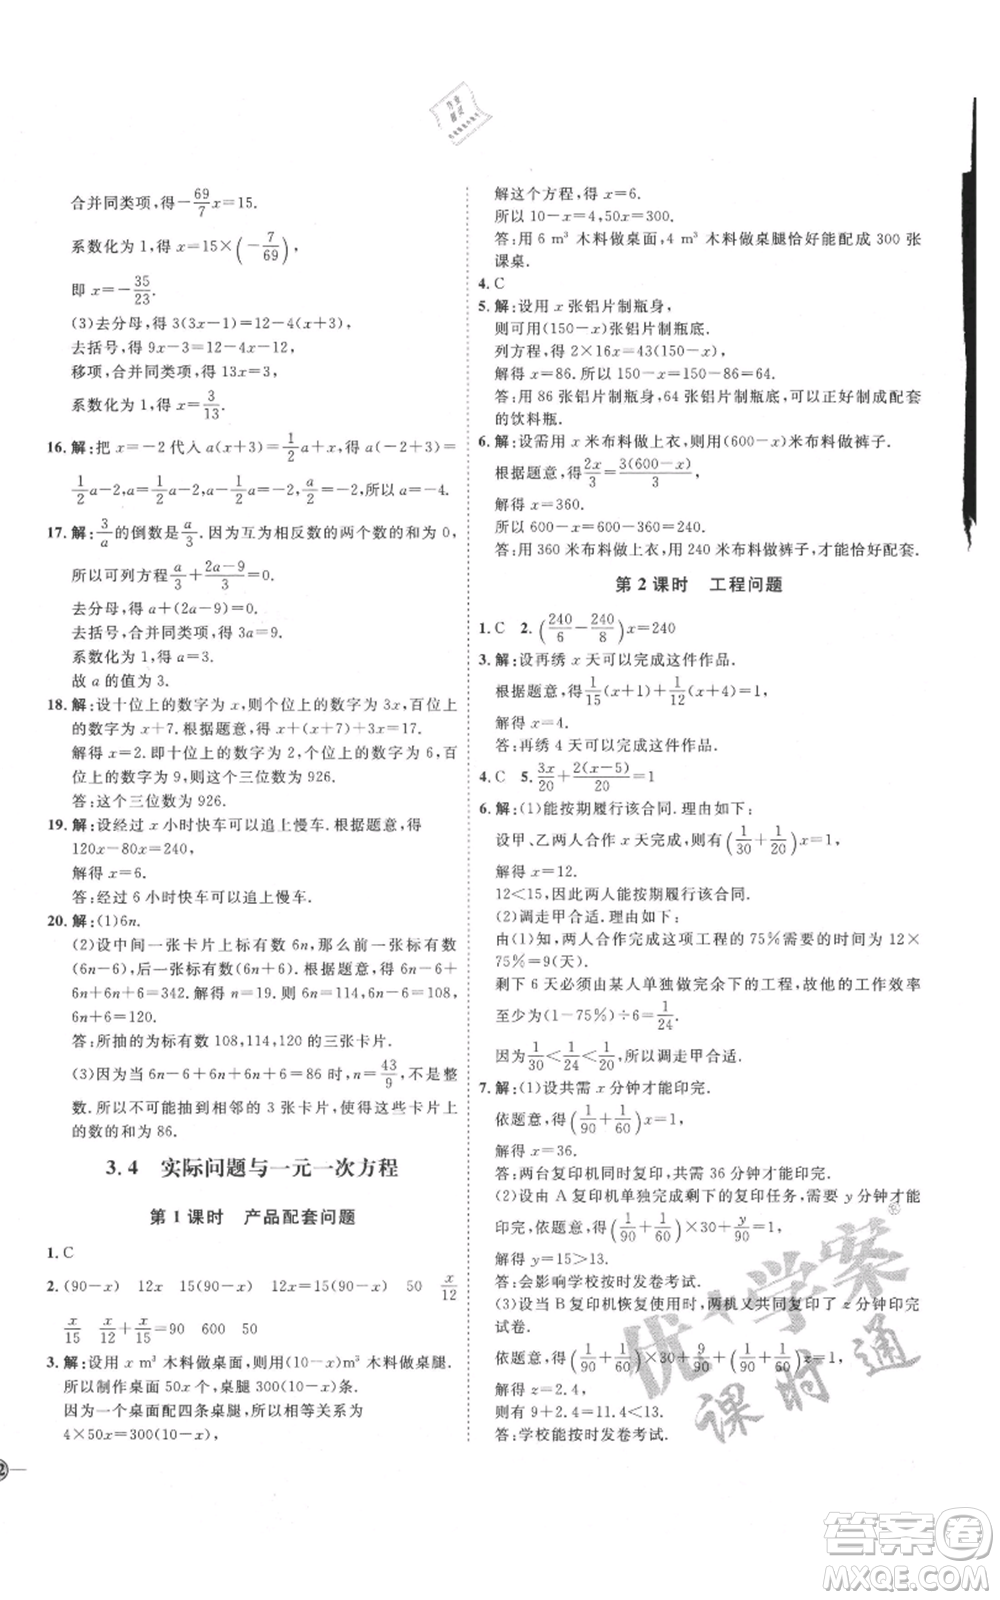 合并同类项,得-69/7x=15.
系数化为1,得x=15×(-7/69),
即x=-35/23.
(3)去分母,得3(3x-1)=12-4(x+3),
去括号,得9x-3=12-4x-12,
移项,合并同类项,得13x=3,
系数化为1,得x=3/13.
16.解:把x=-2代入a(x+3)=1/2a+x,得a(-2+3)=
1/2a-2,a=1/2a-2,1/2a=-2,所以a=-4.
17.解:3/a的倒数是a/3.因为互为相反数的两个数的和为0,
所以可列方程a/3+(2a-9)/3=0.
去分母,得a+(2a-9)=0.
去括号,合并同类项,得3a=9.
系数化为1,得a=3.
故a的值为3.
18.解:设十位上的数字为x,则个位上的数字为3x,百位上
的数字为x+7.根据题意,得x+3x+(x+7)=17.
解得x=2.即十位上的数字为2,个位上的数字为6,百
位上的数字为9,则这个三位数为926.
答:这个三位数为926.
19.解:设经过x小时快车可以追上慢车.根据题意,得
120x-80x=240,
解得x=6.
答:经过6小时快车可以追上慢车.
20.解:(1)6n.
(2)设中间一张卡片上标有数6n,那么前一张标有数
(6n-6),后一张标有数(6n+6).根据题意,得6n-6+
6n+6n+6=342.解得n=19.则6n=114,6n-6=108,
6n+6=120.
答:所抽的为标有数108,114,120的三张卡片.
(3)因为当6n-6+6n+6n+6=86时,n=43/9,不是整
数.所以不可能抽到相邻的3张卡片,使得这些卡片上
的数的和为86.
3.4 实际问题与一元一次方程
第1课时 产品配套问题
1.C
2.(90-x) 12x 15(90-x) 12x=15(90-x) 50 x/12
x/15 x/12+x/15=90 600 50
3.解:设用x m³木料做桌面,则用(10-x)m³木料做桌腿.
所以制作桌面50x个,桌腿300(10-x)条.
因为一个桌面配四条桌腿,所以
4×50x=300(10-x),
解这个方程,得x=6.
所以10-x=4,50x=300.
答:用6 m³木料做桌面,4 m³木料做桌腿恰好能配成300张
课桌.
4.C
5.解:设用x张铝片制瓶身,
则可用(150-x)张铝片制瓶底.
列方程,得2×16x=43(150-x).
解得x=86.所以150-x=150-86=64.
答:用86张铝片制瓶身,64张铝片制瓶底,正好制成配套
的饮料瓶.
6.解:设需用x米布料做上衣,则用(600-x)米布料做裤子.
根据题意,得2x/3=3(600-x)/3,
解得x=360.
所以600-x=600-360=240.
答:用360米布料做上衣,用240米布料做裤子,才恰好配套.
第2课时 工程问题
1.C 2.(240/6-240/8)x=240
3.解:设再绣x天可以完成这件作品.
根据题意,得1/15(x+1)+1/12x=1,
解得x=4.
答:再绣4天可以完成这件作品.
4.C 5.3x/20+2(x-5)/20=1
6.解:(1)能按期履行该合同.理由如下:
设甲、乙两人合作x天完成,则有(1/30+1/20)x=1,
解得x=12.
12<15,因此两人能按期履行该合同.
(2)调走甲合适.理由如下:
由(1)知,两人合作完成这项工程的75%需要的时间为12×
75%=9(天).
剩下6天必须由某人单独做完余下的工程,故他的工作效率
至少为(1-75%)÷6=1/24.
因为1/30<1/24<1/20,所以调走甲合适.
7.解:(1)设共需x分钟才能印完.
依题意,得(1/90+1/60)x=1,
解得x=36.
答:两台复印机同时复印,共需36分钟才能印完.
(2)设由A复印机单独完成剩下的复印任务,需要y分钟才能
印完,依题意,得(1/90+1/60)×30+y/90=1,
解得y=15>13.
答:会影响学校按时发卷考试.
(3)设当B复印机恢复使用时,两机又共同复印了z分钟印完
试卷.
依题意,得(1/90+1/60)×30+9/90+(1/90+1/60)z=1,
解得z=2.4,
则有9+2.4=11.4<13.
答:学校能按时发卷考试.
优+学案
课时通
答案卷
MXQE.COM